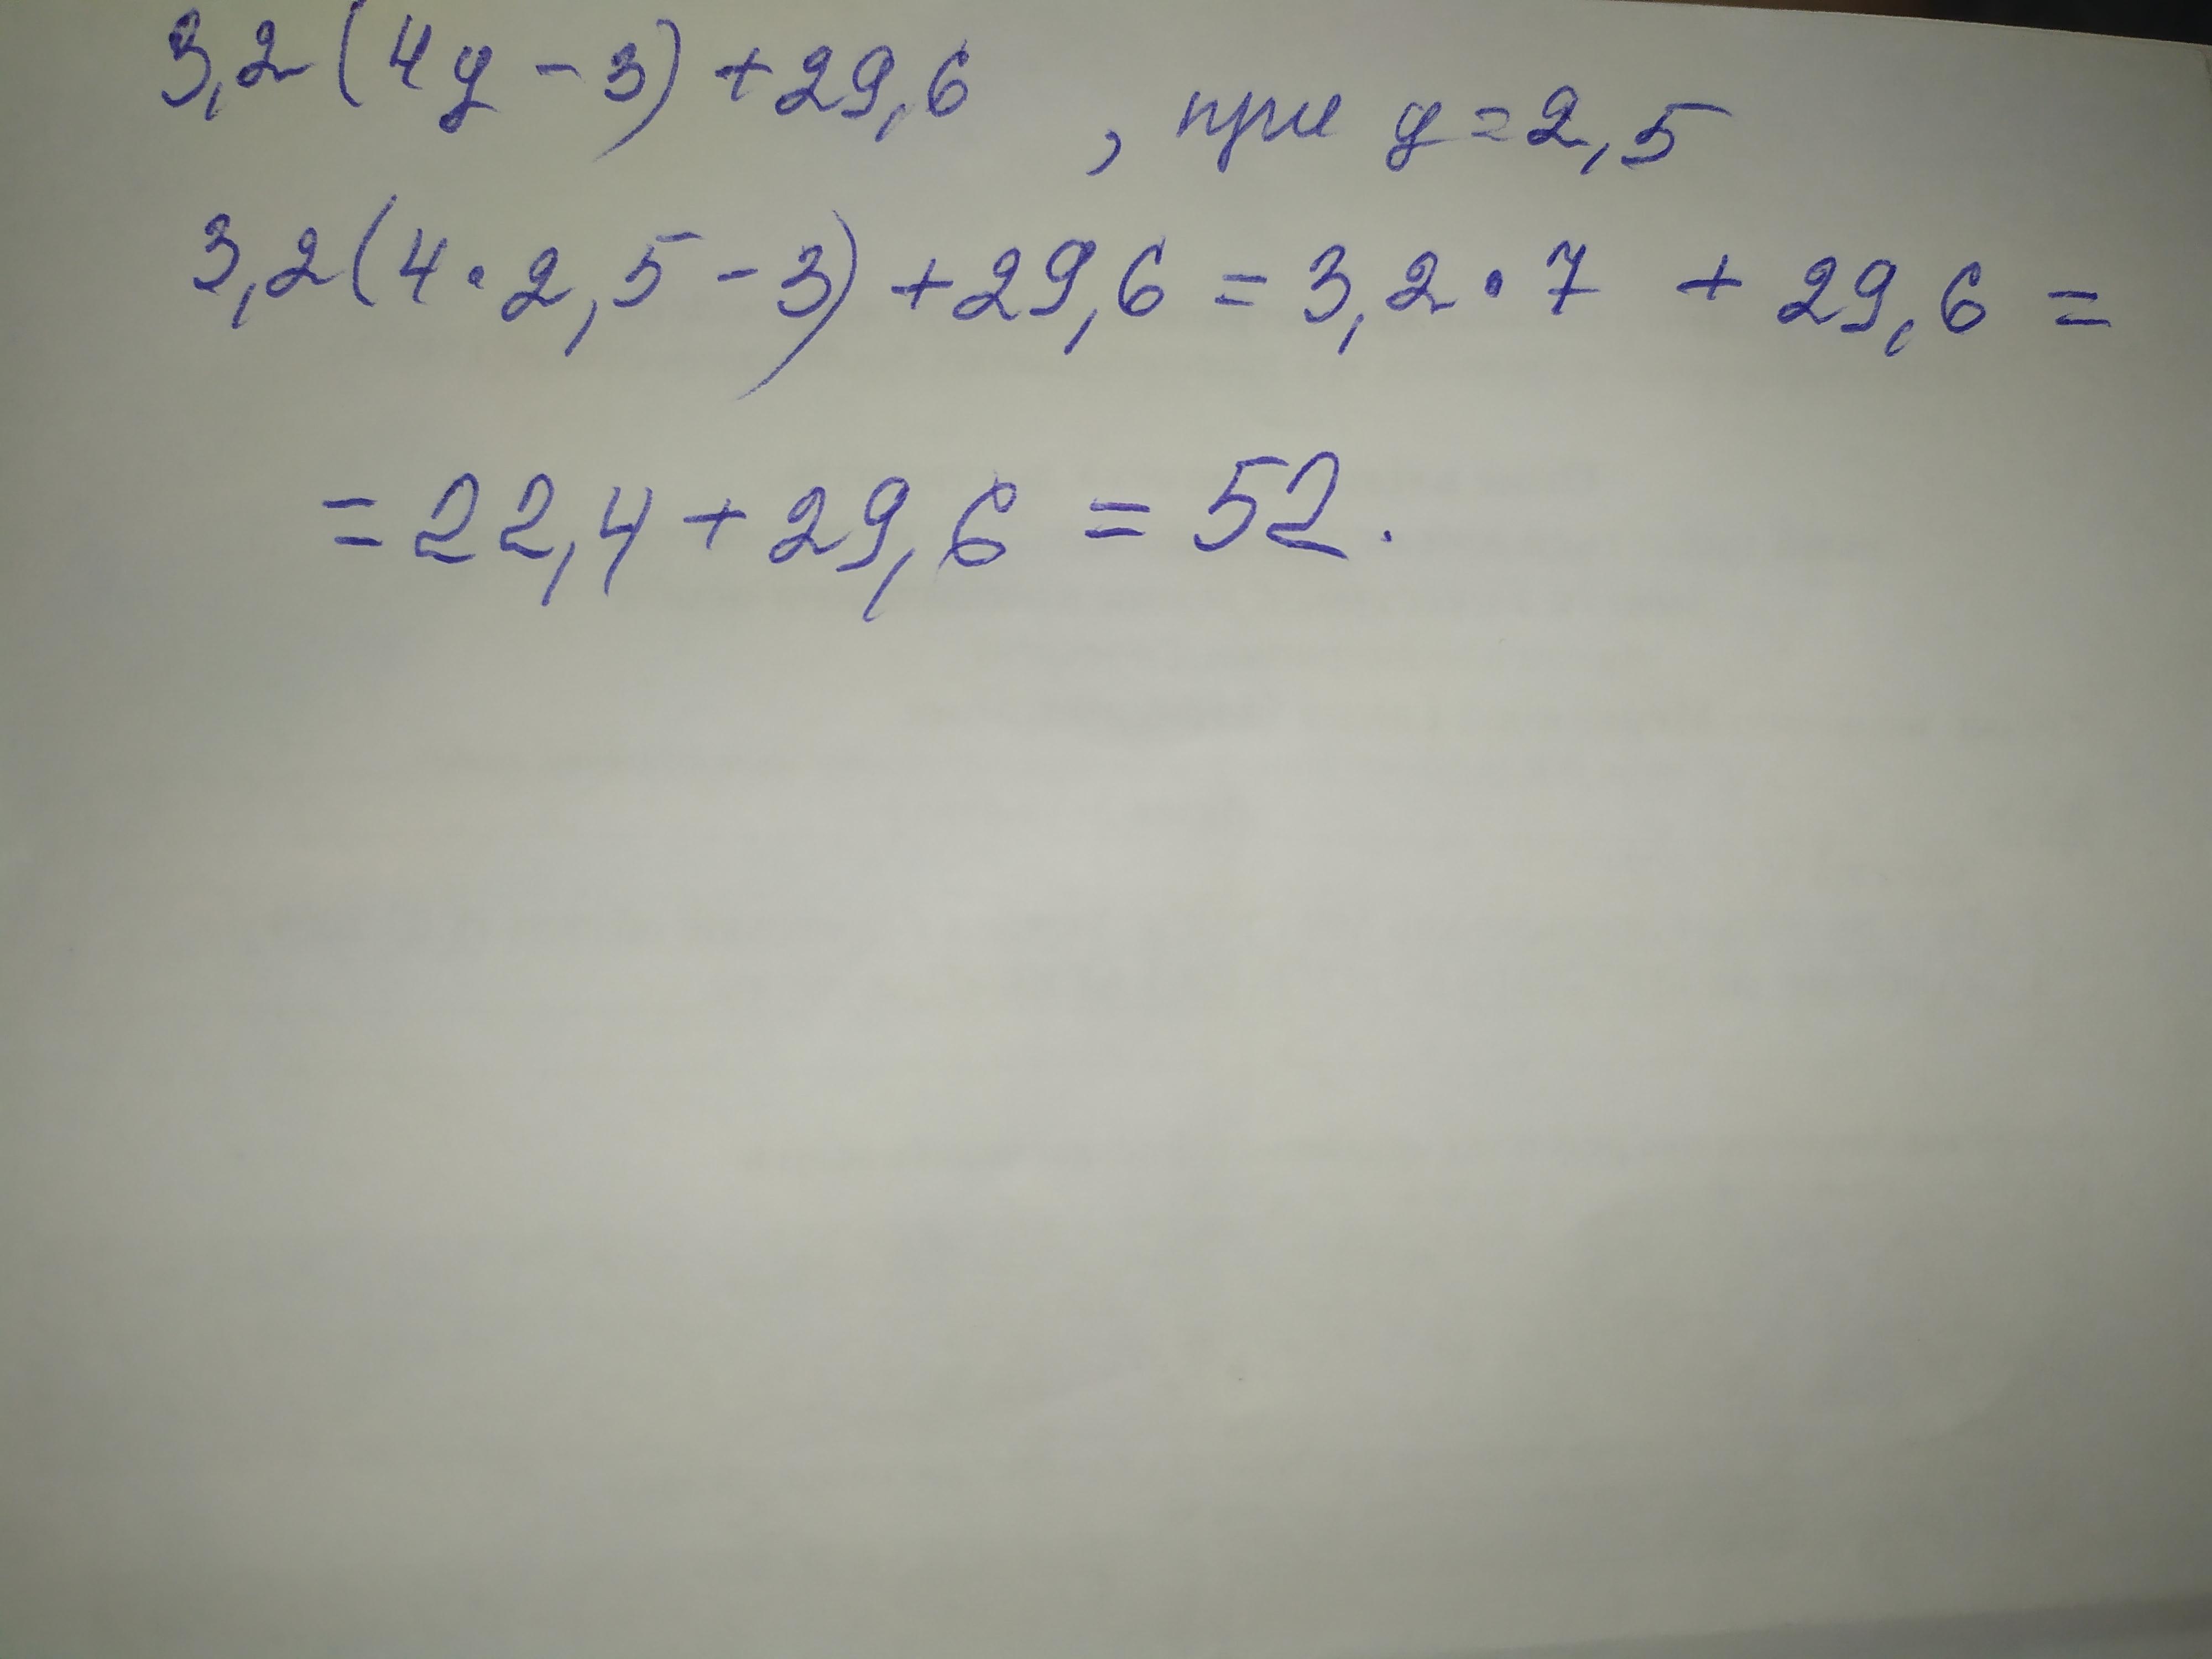 3,2(4y-3)+29,6 , при y=2,5
3,2(4·2,5-3)+29,6=3,2·7+29,6=
=22,4+29,6=52.